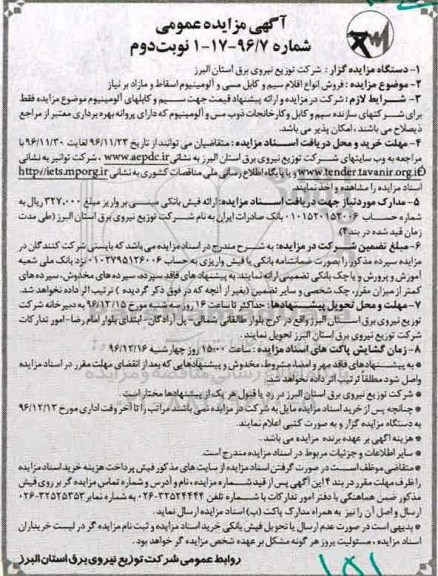 آگهی مزایده عمومی
شماره ۹۶/۷-۱۷-۱ نوبت دوم
۱- دستگاه مزایده گزار : شرکت توزیع نیروی برق استان البرز
۲- موضوع مزایده : فروش انواع اقلام سیم و کابل مسی و آلومینیوم اسقاط و مازاد بر نیاز
۳- شرایط لازم : شرکت در مزایده و ارائه پیشنهاد قیمت جهت سیم و کابلهای آلومینیوم موضوع مزایده فقط
برای شرکتهای سازنده سیم و کابل و کارخانجات ذوب مس و آلومینیوم که دارای پروانه بهره برداری معتبر از مراجع
ذیصلاح می باشند، امکان پذیر می باشد.
۴- مهلت خرید و محل دریافت اسناد مزایده : متقاضیان می توانند از تاریخ ۹۶/۱۱/۲۳ لغایت ۹۶/۱۱/۳۰ با
مراجعه به وب سایتهای شرکت توزیع نیروی برق استان البرز به نشانی www.aepdc.ir ، شرکت توانیر به نشانی
www.tender.tavanir.org.ir و یا پایگاه اطلاع رسانی ملی مناقصات کشوری به نشانی http://iets.mporg.ir
اسناد مزایده را مشاهده و اخذ نمایند.
۵- مدارک مورد نیاز جهت دریافت اسناد مزایده : ارائه فیش بانکی مبنی بر واریز مبلغ ۳۲۷،۰۰۰ ریال به
شماره حساب ۰۱۰۱۵۲۰۱۵۲۰۰۶ بانک صادرات ایران به نام شرکت توزیع نیروی برق استان البرز (طی مدت
زمان قید شده در بند۴)
۶- مبلغ تضمین شرکت در مزایده: به شرح مندرج در اسناد مزایده می باشد که بایستی شرکت کنندگان در
مزایده سپرده مذکور را بصورت ضمانتنامه بانکی یا فیش واریزی به حساب ۰۱۰۲۷۹۵۱۲۶۰۰۶ نزد بانک ملی شعبه
آموزش و پرورش و یا چک بانکی تضمینی ارائه نمایند. به پیشنهاد های فاقد سپرده، سپرده های مخدوش، سپرده های
کمتر از میزان مقرر، چک شخصی و سایر تضمین (بغیر از آنچه که در فوق ذکر گردیده ) ترتیب اثر داده نخواهد شد.
۷- مهلت و محل تحویل پیشنهادها: حداکثر تا ساعت ۱۶ روز سه شنبه مورخ ۹۶/۱۲/۱۵ به دبیرخانه شرکت
توزیع نیروی برق استان البرز واقع در کرج بلوار طالقانی شمالی- پل آزادگان - ابتدای بلوار امام رضا - امور تدارکات
شرکت توزیع نیروی برق استان البرز تحویل نمایند.
۸- زمان گشایش پاکت های اسناد مزایده : ساعت ۱۵:۰۰ روز چهار شنبه ۹۶/۱۲/۱۶
* به پیشنهادهای فاقد مهر و امضا، مشروط، مخدوش و پیشنهادهایی که بعد از انقضای مهلت مقرر در اسناد مزایده
واصل شود مطلقاً ترتیب اثر داده نخواهد شد.
* شرکت توزیع نیروی برق استان البرز در رد یا قبول هر یک از پیشنهادها مختار است.
* چنانچه پس از خرید اسناد مزایده مایل به شرکت در مزایده نمی باشند مراتب را تا آخر وقت اداری مورخ ۹۶/۱۲/۱۳
به دستگاه مزایده گزار و به صورت کتبی اعلام نمایند.
* هزینه آگهی بر عهده برنده مزایده می باشد.
* سایر اطلاعات و جزئیات مربوط در اسناد مزایده مندرج است.
* متقاضی موظف است در صورت گرفتن اسناد مزایده از سایت های مذکور فیش پرداخت هزینه خرید اسناد مزایده
را ظرف مهلت مقرر در بند ۴ این آگهی پس از قید شماره مزایده ، نام و آدرس و شماره تماس مزایده گر بر روی فیش
مذکور ضمن هماهنگی با دفتر امور تدارکات با شماره تلفن ۳۲۵۲۴۴۴۴-۰۲۶ به شماره نمابر ۳۲۵۲۵۳۵۳-۰۲۶
ارسال و اصل آن را نیز به همراه مدارک پاکت (ب) اسناد مزایده ارسال نماید.
* بدیهی است در صورت عدم ارسال یا تحویل فیش بانکی خرید اسناد مزایده و ثبت نام مزایده گر در لیست خریداران
اسناد مزایده ، مسئولیت بروز هر گونه مشکل بر عهده شخص مزایده گر خواهد بود.
روابط عمومی شرکت توزیع نیروی برق استان البرز